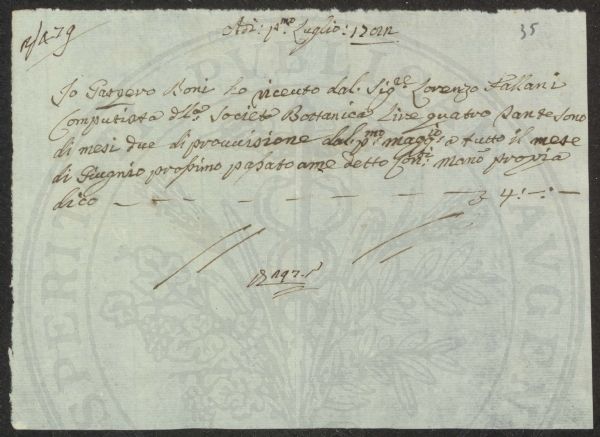 35
Adi: p.mo Luglio:
Io Gaspero Boni ho riceuto dal Sig.re Lorenzo Fallani
Computista d.la Societa Bottanica Lire quatro sante sono
di mesi due di provvisione dal p.mo magg.o a tutto il mese
di Giugnio prosimo pasato ame detto Con.ti Mano propia
dico — — — — — — — 4: -: —